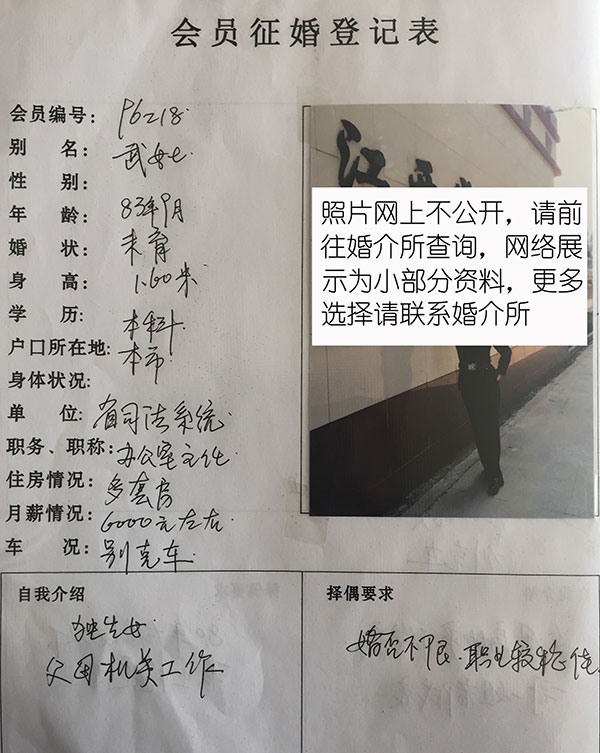 会员征婚登记表
会员编号: P6218
别 名: 武女士
性 别:
年 龄: 83年9月
婚 状: 未育
身 高: 1.60米
学 历: 本科
户口所在地: 本市
身体状况:
单 位: 省司法系统
职务、职称: 办公室主任
住房情况: 多套房
月薪情况: 6000元左右
车 况: 别克车
照片网上不公开，请前
往婚介所查询，网络展
示为小部分资料，更多
选择请联系婚介所
自我介绍
独生女
父母机关工作
择偶要求
婚否不限.职业较稳佳